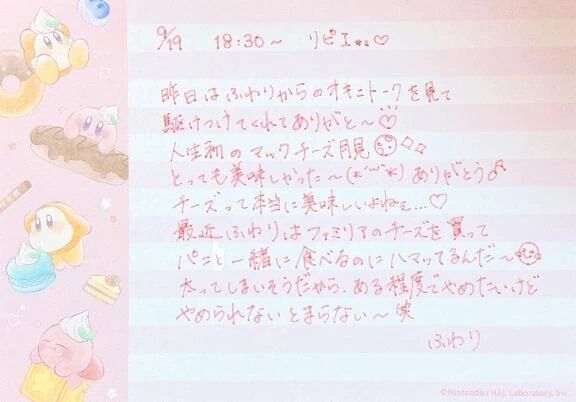 9/19 18:30～ リピエ**♡
昨日はふわりからのオキニトークを見て
駆けつけてくれてありがと～♡
人生初のマックチーズ月見
とっても美味しかった～(*´`*)ありがとう♂
チーズって本当に美味しいよねぇ…♡
最近ふわりはファミリアのチーズを買って
パンと一緒に食べるのにハマッてるんだ～
太ってしまいそうだから、ある程度でやめたいけど
やめられないとまらない～笑
ふわり
©Nintendo / HAL Laboratory, Inc.